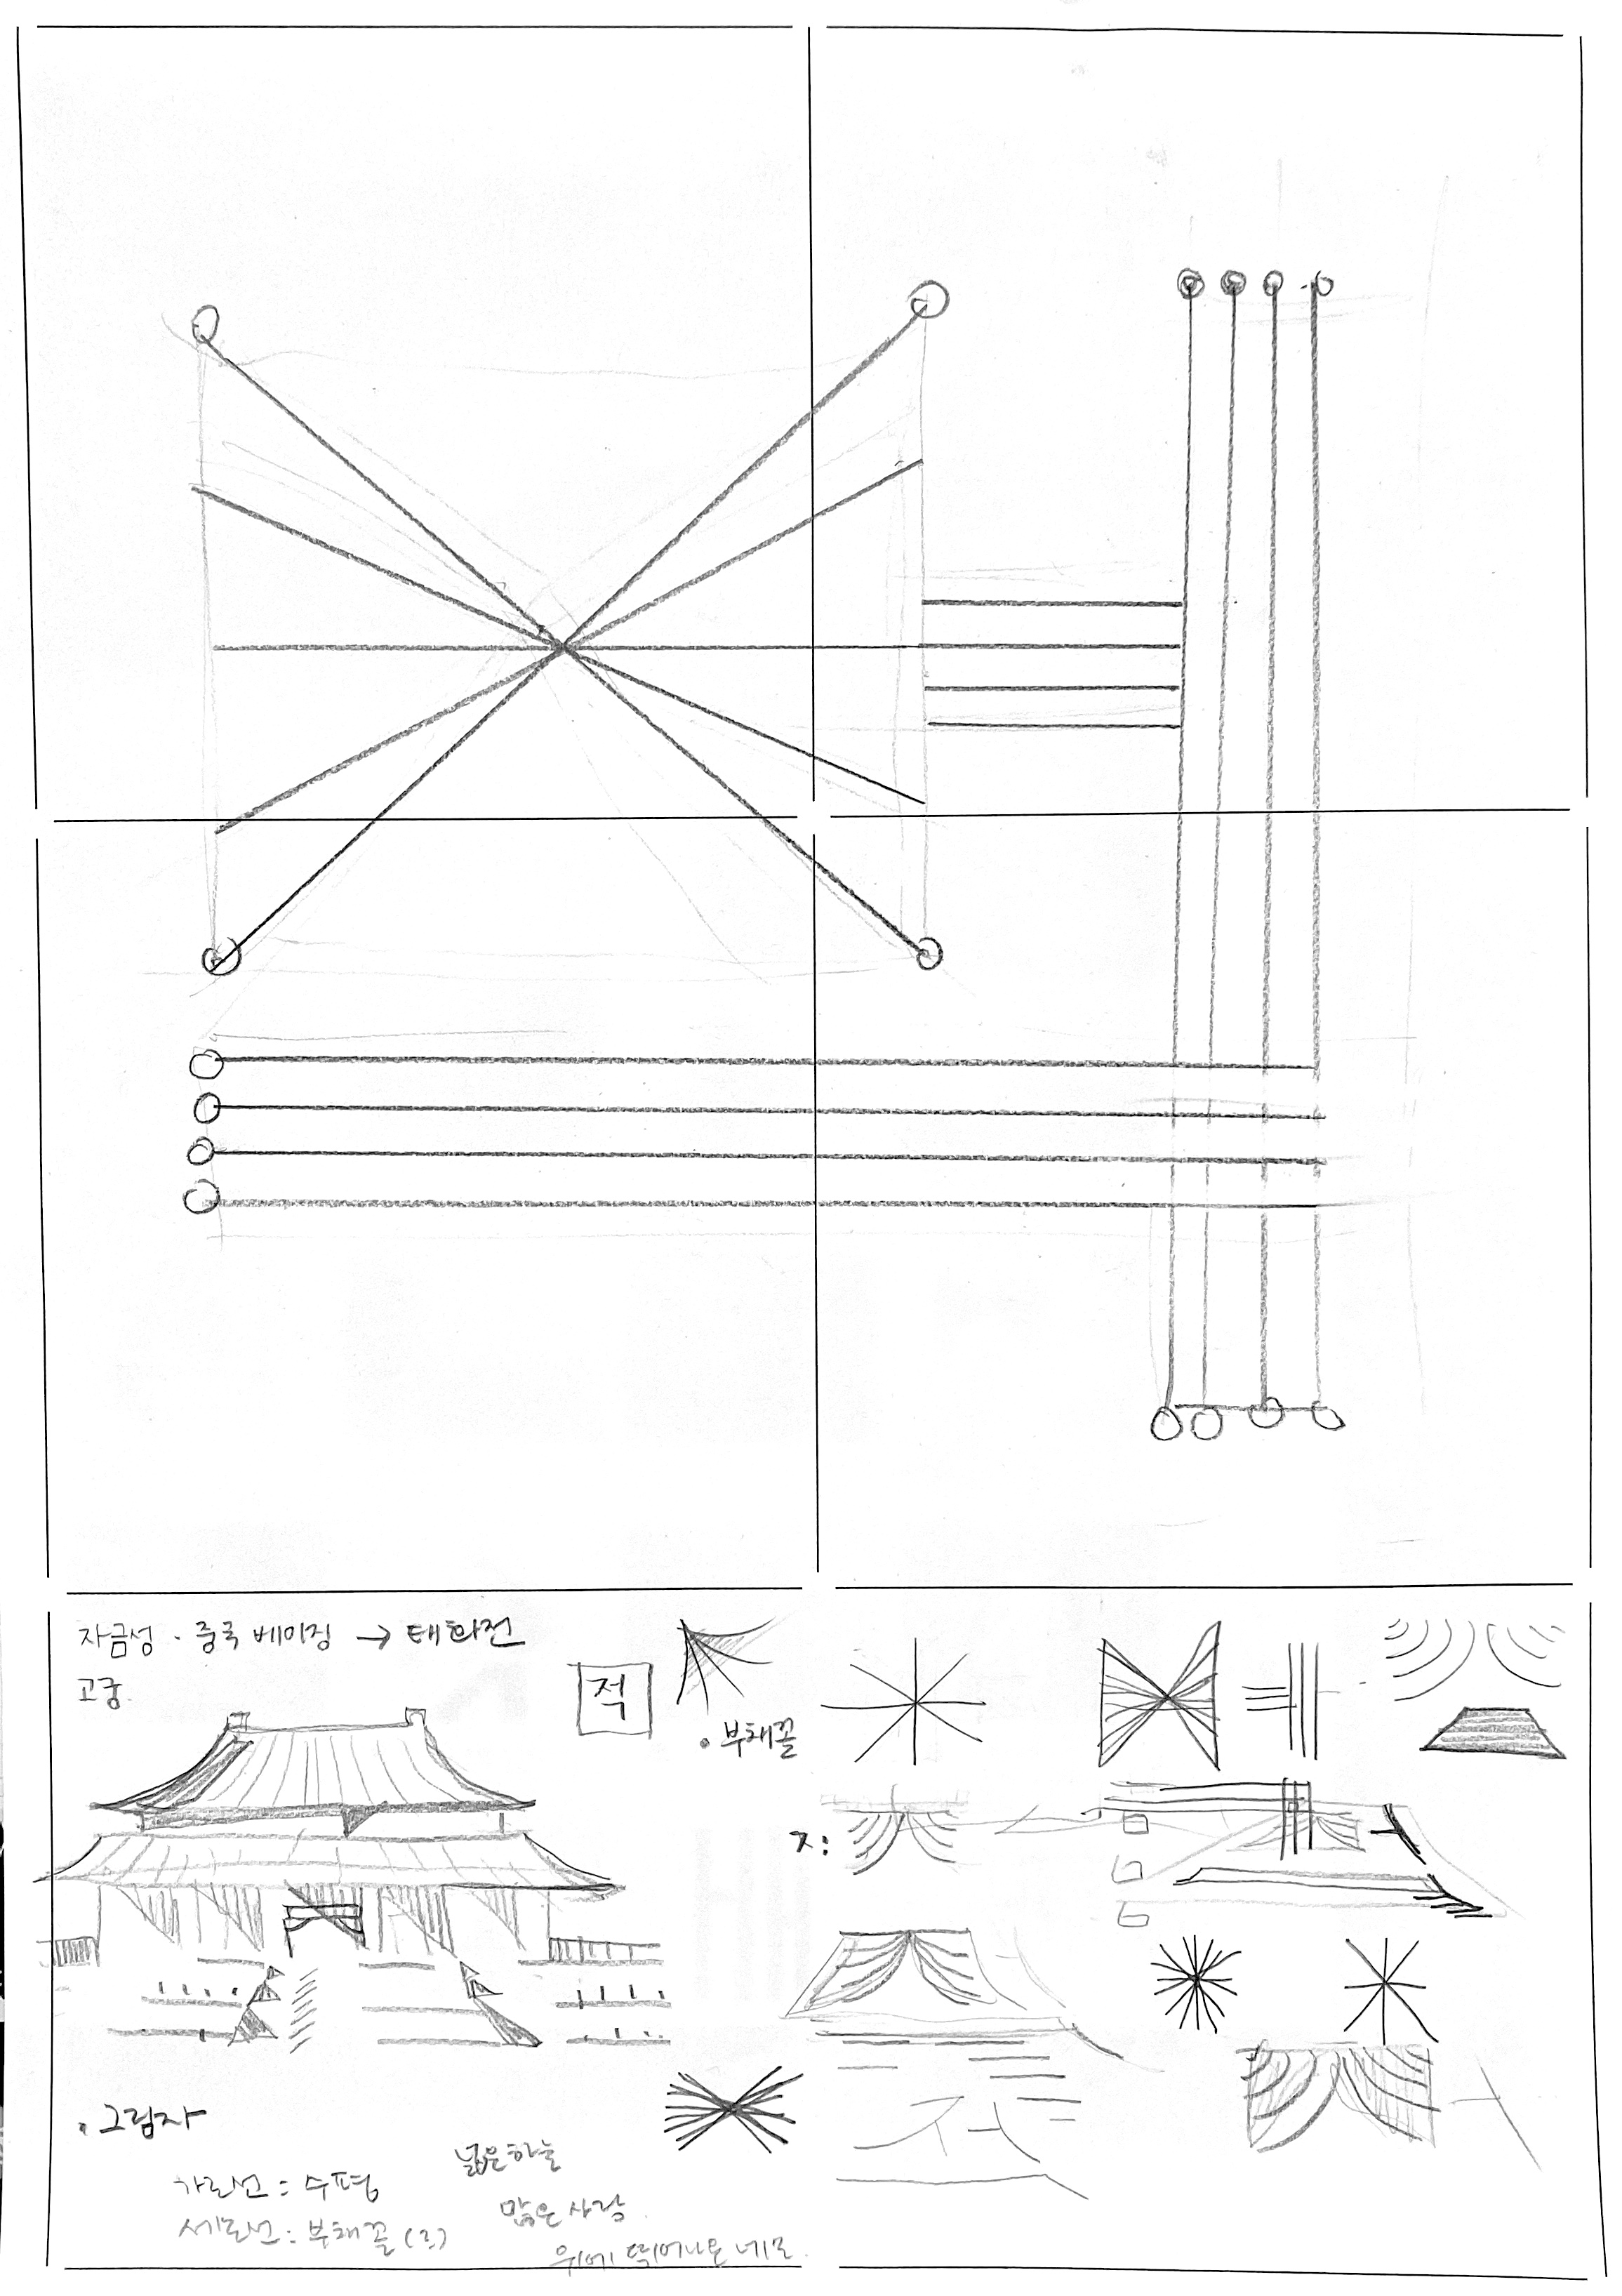 자금성 · 중국 베이징 → 태화전
고궁
적
• 부채꼴
ㅈ:
• 그림자
가로선 : 수평
세로선 : 부채꼴
넓은 하늘
많은 사람
위에 튀어나온 네모